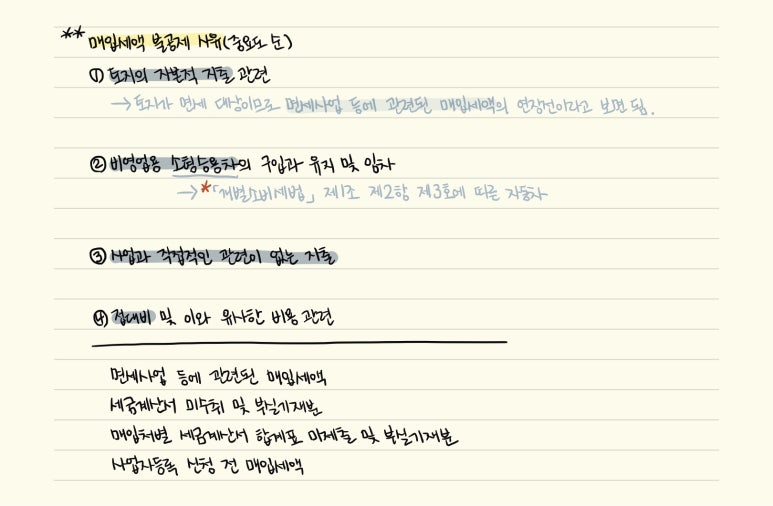 ** 매입세액 불공제 사유(중요도 순)
① 토지의 자본적 지출 관련
→ 토지가 면세 대상이므로 면세사업 등에 관련된 매입세액의 연장선이라고 보면 됨.
② 비영업용 소형승용차의 구입과 유지 및 임차
→ *「개별소비세법」 제1조 제2항 제3호에 따른 자동차
③ 사업과 직접적인 관련이 없는 지출
④ 접대비 및 이와 유사한 비용 관련
면세사업 등에 관련된 매입세액
세금계산서 미수취 및 부실기재분
매입처별 세금계산서 합계표 미제출 및 부실기재분
사업자등록 신청 전 매입세액